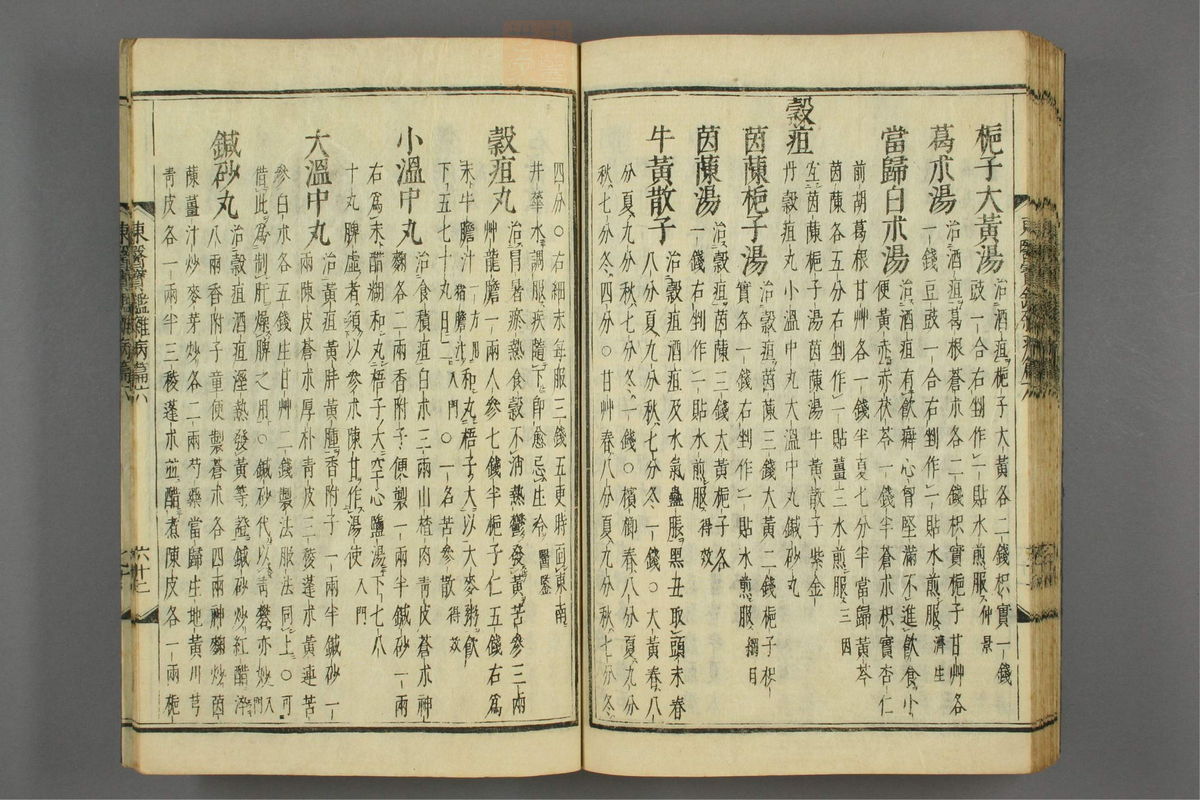 梔子大黃湯 治酒疸梔子大黃各二錢枳實一錢
豉一合右剉作一貼水煎服仲景
葛朮湯 治酒疸葛根蒼朮各二錢枳實梔子甘艸各
一錢豆豉一合右剉作一貼水煎服濟生
當歸白朮湯 治酒疸有飮癖心胷堅滿不進飮食小
便黃赤赤茯苓一錢半蒼朮枳實杏仁
前胡葛根甘艸各一錢半夏七分半當歸黃芩
茵蔯各五分右剉作一貼薑三水煎服三因
穀疸
宜茵蔯梔子湯茵蔯湯牛黃散子紫金
丹穀疸丸小溫中丸大溫中丸鍼砂丸
茵蔯梔子湯 治穀疸茵蔯三錢大黃二錢梔子枳
實各一錢右剉作一貼水煎服綱目
茵蔯湯 治穀疸茵蔯三錢大黃梔子各
一錢右剉作一貼水煎服得效
牛黃散子 治穀疸酒疸及水氣蠱脹黑丑取頭末春
八分夏九分秋七分冬一錢○大黃春八
分夏九分秋七分冬一錢○檳榔春八分夏九分
秋七分冬四分○甘艸春八分夏九分秋七分冬
四分○右細末每服三錢五更時面東南
井華水調服疾隨下卽愈忌生冷醫鑒
穀疸丸 治胃暑瘀熱食穀不消熱鬱發黃苦參三兩
艸龍膽一兩人參七錢半梔子仁五錢右爲
末牛膽汁一方用猪膽汁和丸梧子大以大麥粥飮
下五七十丸日二入門○一名苦參散得效
小溫中丸 治食積疸白朮三兩山楂肉靑皮蒼朮神
麴各二兩香附子便製一兩半鍼砂一兩
右爲末醋糊和丸梧子大空心鹽湯下七八
十丸脾虛者須以參朮陳甘作湯使入門
大溫中丸 治黃胖黃腫香附子一兩半鍼砂一
兩陳皮蒼朮厚朴靑皮三稜蓬朮黃連苦
參白朮各五錢生甘艸二錢製法服法同上○可
借此爲制肝燥脾之用○鍼砂代以靑礬亦妙入門
鍼砂丸 治穀疸酒疸溼熱發黃等證鍼砂炒紅醋淬
八兩香附子童便製蒼朮各四兩神麴炒茵
蔯薑汁炒麥芽炒各二兩芍藥當歸生地黃川芎
靑皮各一兩半三稜蓬朮並醋煮陳皮各一兩梔
東醫寶鑑雜病篇六
六十二